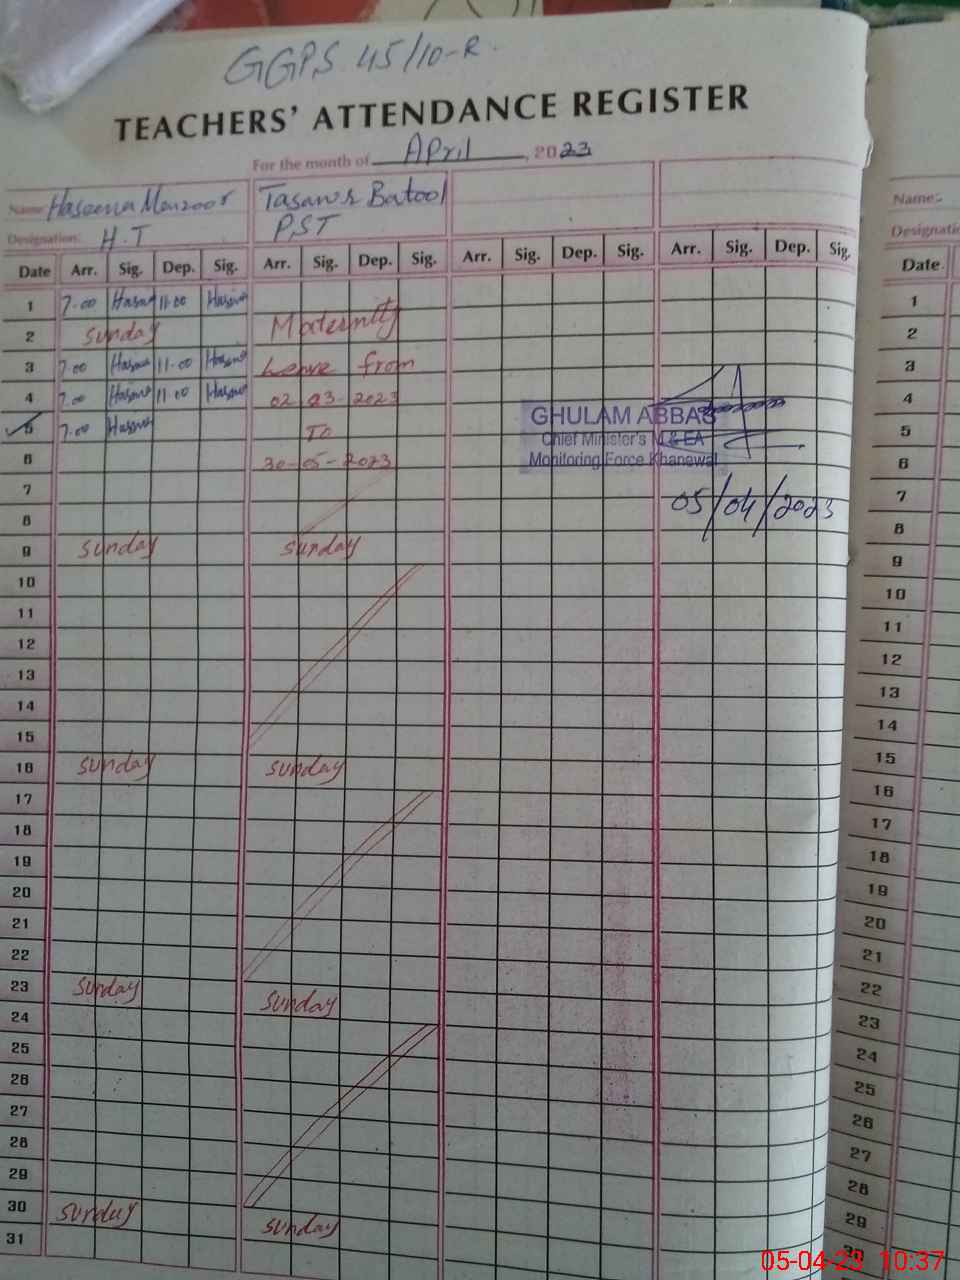 GGPS 45/10-R.
TEACHERS' ATTENDANCE REGISTER
For the month of April, 2023
Name: Haseena Manzoor Tasawr Batool
Designation: H.T PST
Date Arr. Sig. Dep. Sig. Arr. Sig. Dep. Sig. Arr. Sig. Dep. Sig. Arr. Sig. Dep. Sig.
1 7.00 Hasna 11.00 Hasna
2 Sunday Maternity
3 7.00 Hasna 11.00 Hasna Leave from
4 7.00 Hasna 11.00 Hasna 02-03-2023
5 7.00 Hasna To
6 30-05-2023
7
8
9 Sunday Sunday
10
11
12
13
14
15
16 Sunday Sunday
17
18
19
20
21
22
23 Sunday Sunday
24
25
26
27
28
29
30 Sunday Sunday
31
GHULAM ABBAS
Chief Minister's M & EA
Monitoring Force Khanewal
05/04/2023
Name:-
Date
1
2
3
4
5
6
7
8
9
10
11
12
13
14
15
16
17
18
19
20
21
22
23
24
25
26
27
28
29
30
05-04-23 10:37